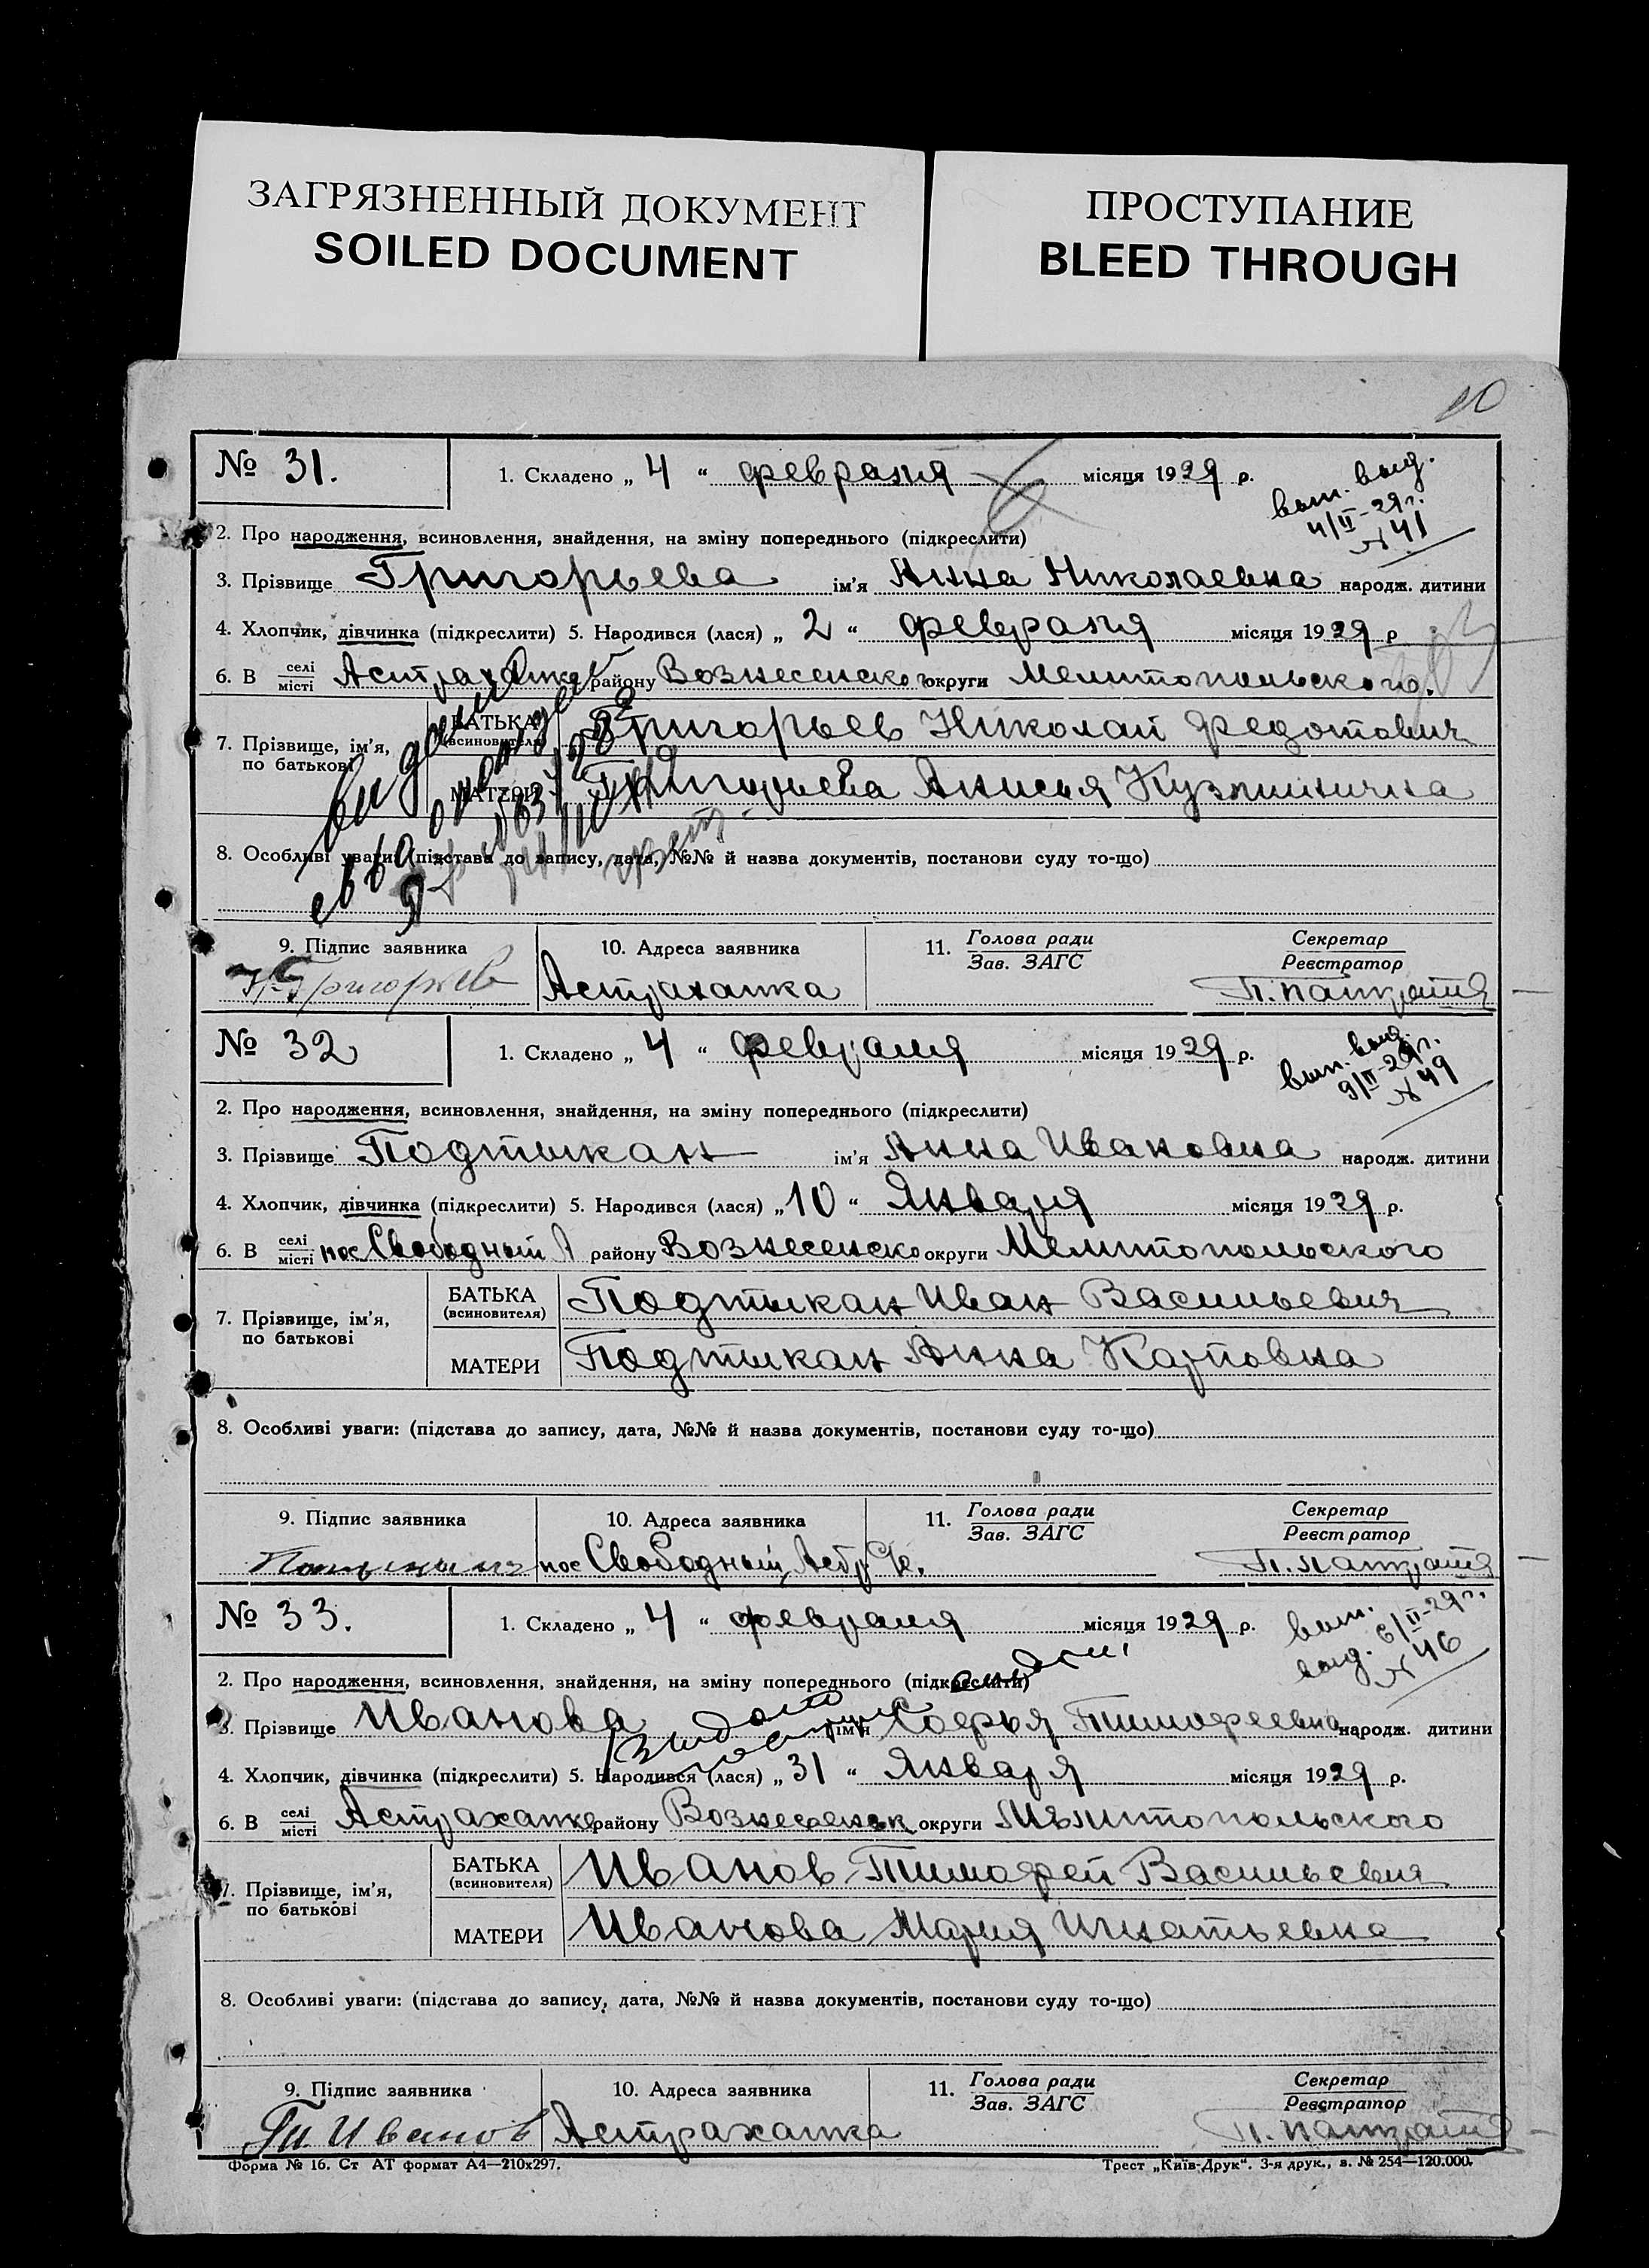 ЗАГРЯЗНЕННЫЙ ДОКУМЕНТ
SOILED DOCUMENT
ПРОСТУПАНИЕ
BLEED THROUGH
10
№ 31. 1. Складено „ 4 “ февраля місяця 1929 р.
вып. выд.
4/II-29г.
№ 41
2. Про народження, всиновлення, знайдення, на зміну попереднього (підкреслити)
3. Прізвище Григорьева ім'я Анна Николаевна народж. дитини
4. Хлопчик, дівчинка (підкреслити) 5. Народився (лася) „ 2 “ февраля місяця 1929 р
6. В селі/місті Астраханке району Вознесенского округи Мелитопольского.
7. Прізвище, ім'я, по батькові
БАТЬКА (всиновителя) Григорьев Николай Федотович
МАТЕРИ Григорьева Анисья Кузминична
8. Особливі уваги: (підстава до запису, дата, №№ й назва документів, постанови суду то-що)
9. Підпис заявника 10. Адреса заявника 11. Голова ради/Зав. ЗАГС Секретар/Реєстратор
Григорьев Астраханка
№ 32 1. Складено „ 4 “ февраля місяця 1929 р.
вып. выд.
9/II-29г.
№ 49
2. Про народження, всиновлення, знайдення, на зміну попереднього (підкреслити)
3. Прізвище Подтыкан ім'я Анна Ивановна народж. дитини
4. Хлопчик, дівчинка (підкреслити) 5. Народився (лася) „ 10 “ Января місяця 1929 р.
6. В селі/місті пос Свободный району Вознесенско округи Мелитопольского
7. Прізвище, ім'я, по батькові
БАТЬКА (всиновителя) Подтыкан Иван Васильевич
МАТЕРИ Подтыкан Анна Карповна
8. Особливі уваги: (підстава до запису, дата, №№ й назва документів, постанови суду то-що)
9. Підпис заявника 10. Адреса заявника 11. Голова ради/Зав. ЗАГС Секретар/Реєстратор
пос Свободный
№ 33. 1. Складено „ 4 “ февраля місяця 1929 р.
вып. 6/II-29г.
выд. № 46
2. Про народження, всиновлення, знайдення, на зміну попереднього (підкреслити)
3. Прізвище Иванова ім'я Софья Тимофеевна народж. дитини
4. Хлопчик, дівчинка (підкреслити) 5. Народився (лася) „ 31 “ Января місяця 1929 р.
6. В селі/місті Астраханке району Вознесенск округи Мелитопольского
7. Прізвище, ім'я, по батькові
БАТЬКА (всиновителя) Иванов Тимофей Васильевич
МАТЕРИ Иванова Мария Игнатьевна
8. Особливі уваги: (підстава до запису, дата, №№ й назва документів, постанови суду то-що)
9. Підпис заявника 10. Адреса заявника 11. Голова ради/Зав. ЗАГС Секретар/Реєстратор
Ти. Иванов Астраханка
Форма № 16. Ст АТ формат А4—210х297. Трест „Київ-Друк“. 3-я друк., з. № 254—120.000.